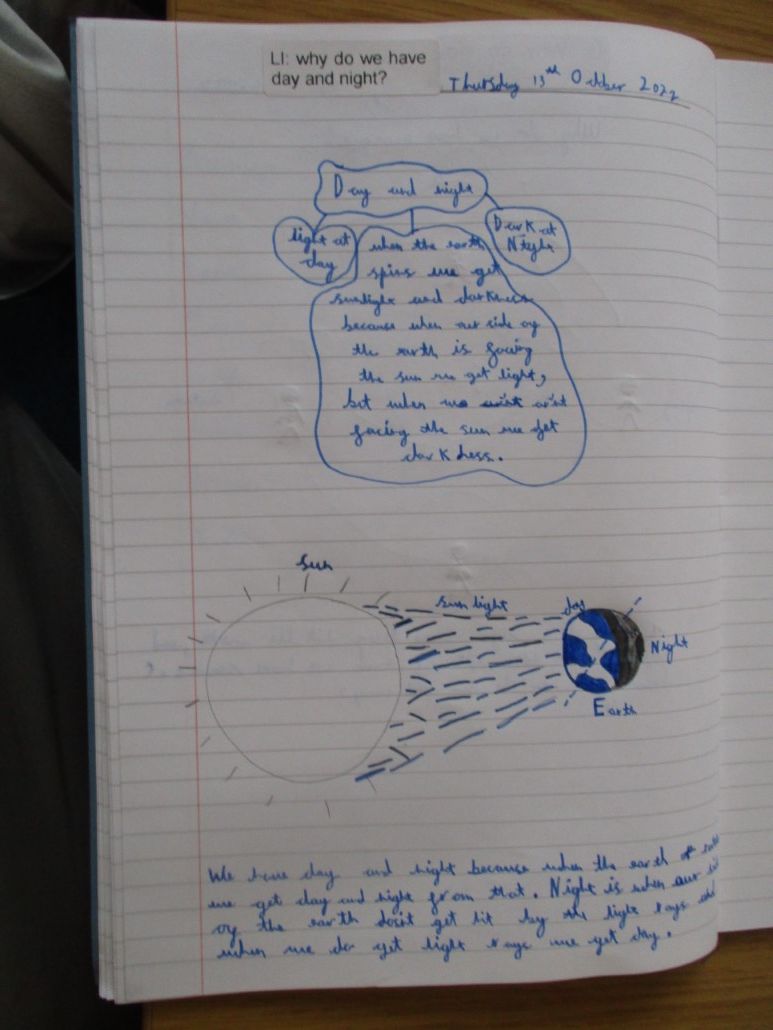 LI: why do we have
day and night?
Thursday 13th October 2022
Day and night
light at
day
Dark at
Night
when the earth
spins we get
sunlight and darkness
because when our side of
the earth is facing
the sun we get light,
but when we arint
facing the sun we get
darkness.
Sun
sun light
day
Night
Earth
We have day and night because when the earth
we get day and night from that. Night is when our
of the earth dosit get hit by the light rays and
when we do get light rays we get day.